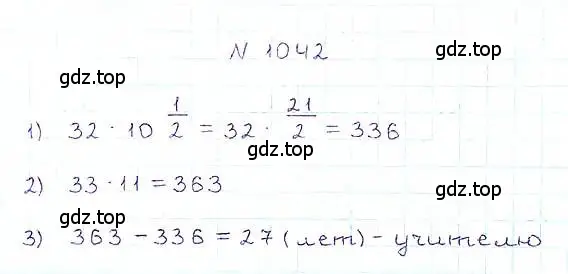 N 1042
gdz.top
gdz.top
1) 32 · 10 1/2 = 32 · 21/2 = 336
gdz.top
2) 33 · 11 = 363
gdz.top
3) 363 - 336 = 27 (лет) - учителю
gdz.top